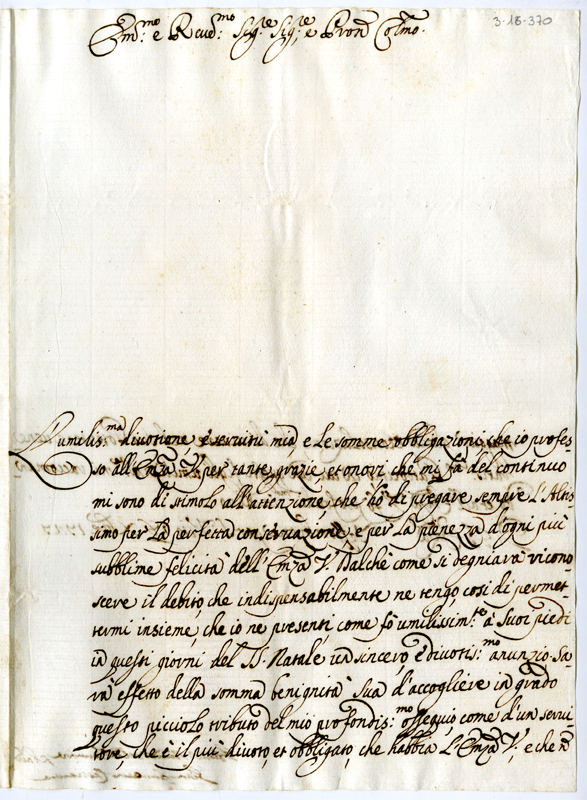 3-18-370
Em.mo e Reud.mo Sig.re Sig.re e Pron Colmo.
L'umilis.ma diuotione e seruitù mia, e le somme obbligazioni, che io profes-
so all'Emza V. per tante grazie, et onori che mi fà del continuo
mi sono di stimolo all'attenzione, che hò di pregare sempre l'Altis-
simo per la perfetta conseruazione, e per la pienezza d'ogni più
subblime felicità dell'Emza V. Dalche come si degniarà ricono
scere il debito, che indispensabilmente ne tengo, così di permet-
termi insieme, che io ne presenti, come fò umilissim.te à Suoi piedi
in questi giorni del SS. Natale un sincero, e diuotis.mo anunzio. Sa-
rà effetto della somma benignità Sua d'accogliere in grado
questo picciolo tributo del mio profondis.mo osseguio, come d'un serui
tore, che è il più diuoto, et obbligato, che habbia l'Emza V., e che